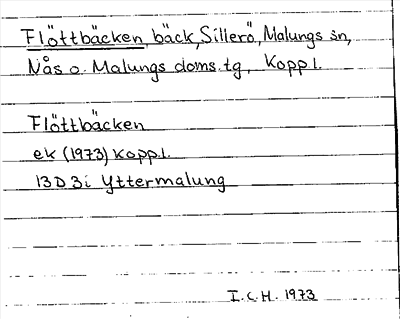 Flöttbäcken, bäck, Sillerö, Malungs sn,
Nås o. Malungs doms. tg, Kopp l.
Flöttbäcken
ek (1973) Kopp.l.
13D 3i Yttermalung
I.C.H. 1973